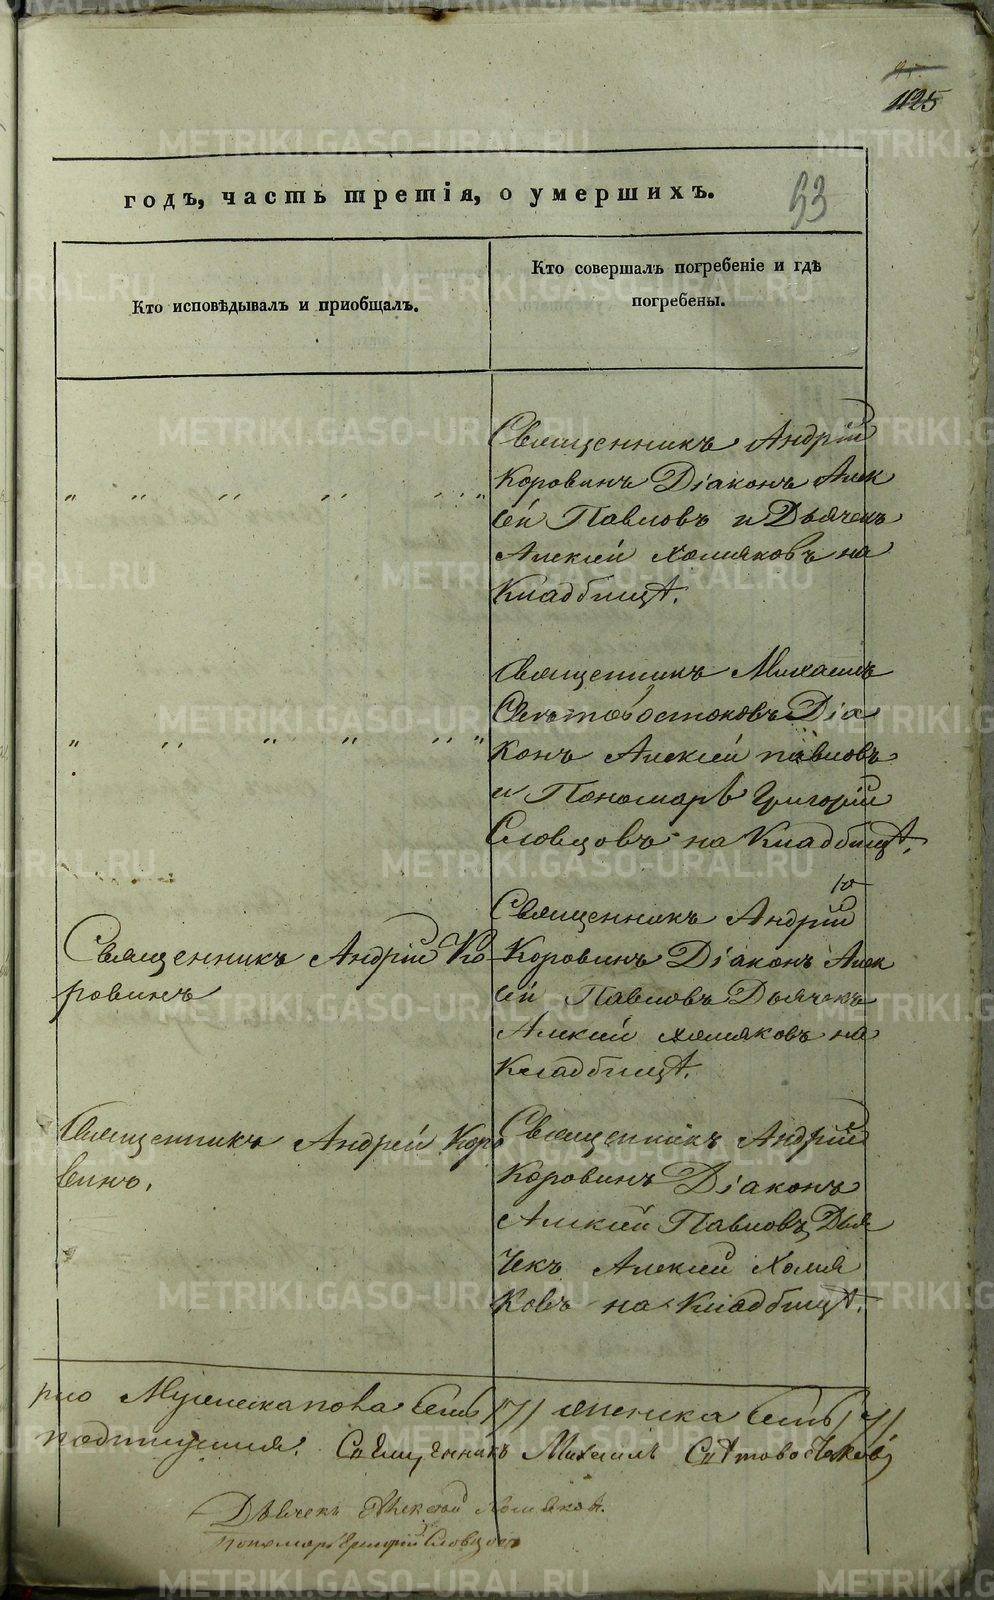 1125
годъ, часть третія, о умершихъ.
53
Кто исповѣдывалъ и приобщалъ.
Кто совершалъ погребеніе и гдѣ
погребены.
Священникъ Андрій
Коровинъ Діаконъ Алек
сѣй Павловъ и Дьячекъ
Алексій Холмяковъ на
Кладбищѣ.
Священникъ Михаилъ
Свѣтовостоковъ Діа
конъ Алексій павловъ
и Пономарь Григорій
Словцовъ на Кладбищѣ.
Священникъ Андрій
Коровинъ Діаконъ Алек
сѣй Павловъ Дьячекъ
Алексій Холмяковъ на
Кладбищѣ.
Священникъ Андрій Ко
ровинъ
Священникъ Андрей Коро
винъ.
Священникъ Андрій
Коровинъ Діаконъ
Алексій Павловъ, Дья
чекъ Алексій Холмя
ковъ на Кладбищѣ.
рло Мужеска пола семь /7/ женска семь /7/
Священникъ Михаилъ Свѣтовостоковъ
Дьячекъ Алексѣй Холмяковъ.
Пономарь Григорій Словцовъ
METRIKI.GASO-URAL.RU